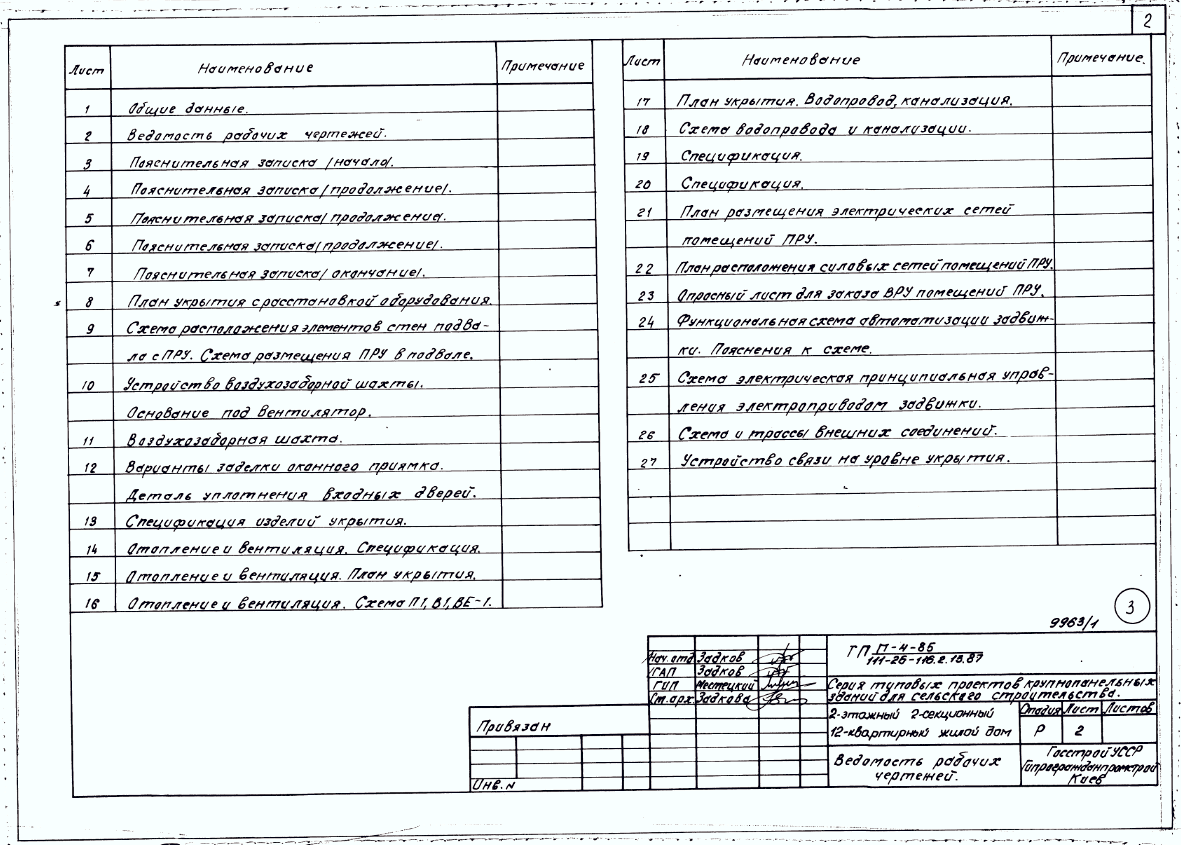 2
Лист Наименование Примечание
1 Общие данные.
2 Ведомость рабочих чертежей.
3 Пояснительная записка /начало/.
4 Пояснительная записка /продолжение/.
5 Пояснительная записка /продолжение.
6 Пояснительная записка /продолжение/.
7 Пояснительная записка /окончание/.
8 План укрытия с расстановкой оборудования.
9 Схема расположения элементов стен подва-
ла с ПРУ. Схема размещения ПРУ в подвале.
10 Устройство воздухозаборной шахты.
Основание под вентилятор.
11 Воздухозаборная шахта.
12 Варианты заделки оконного приямка.
Деталь уплотнения входных дверей.
13 Спецификация изделий укрытия.
14 Отопление и вентиляция. Спецификация.
15 Отопление и вентиляция. План укрытия.
16 Отопление и вентиляция. Схема П1, В1, ВЕ-1.
Лист Наименование Примечание.
17 План укрытия. Водопровод, канализация.
18 Схема водопровода и канализации.
19 Спецификация.
20 Спецификация.
21 План размещения электрических сетей
помещений ПРУ.
22 План расположения силовых сетей помещений ПРУ.
23 Опросный лист для заказа ВРУ помещений ПРУ.
24 Функциональная схема автоматизации задвиж-
ки. Пояснения к схеме.
25 Схема электрическая принципиальная управ-
ления электроприводом задвижки.
26 Схема и трассы внешних соединений.
27 Устройство связи на уровне укрытия.
9963/1
3
ТП П-4-85
111-25-116.2.13.87
Нач. отд Задков
ГАП Задков
ГИП Местецкий
Ст.арх. Задкова
Серия типовых проектов крупнопанельных
зданий для сельского строительства.
2-этажный 2-секционный
12-квартирный жилой дом
Стадия Лист Листов
Р 2
Ведомость рабочих
чертежей.
Госстрой УССР
Гипрогражданпромстрой
Киев
Привязан
Инв. N